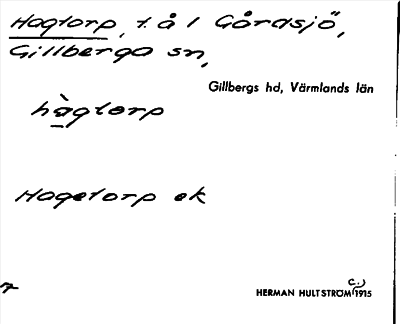 Hagtorp, t. å l Gårdsjö,
Gillberga sn,
Gillbergs hd, Värmlands län
hàgtorp
Hagetorp ek
HERMAN HULTSTRÖM (C.) 1915